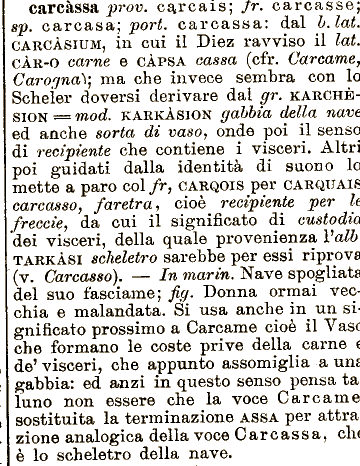 carcàssa prov. carcais; fr. carcasse;
sp. carcasa; port. carcassa: dal b. lat.
CARCÀSIUM, in cui il Diez ravviso il lat.
CÀR-O carne e CÀPSA cassa (cfr. Carcame,
Carogna); ma che invece sembra con lo
Scheler doversi derivare dal gr. KARCHÈ-
SION = mod. KARKÀSION gabbia della nave
ed anche sorta di vaso, onde poi il senso
di recipiente che contiene i visceri. Altri
poi guidati dalla identità di suono lo
mette a paro col fr, CARQOIS per CARQUAIS
carcasso, faretra, cioè recipiente per le
freccie, da cui il significato di custodia
dei visceri, della quale provenienza l'alb
TARKÀSI scheletro sarebbe per essi riprova
(v. Carcasso). — In marin. Nave spogliata
del suo fasciame; fig. Donna ormai vec-
chia e malandata. Si usa anche in un si-
gnificato prossimo a Carcame cioè il Vaso
che formano le coste prive della carne e
de' visceri, che appunto assomiglia a una
gabbia: ed anzi in questo senso pensa ta
luno non essere che la voce Carcame
sostituita la terminazione ASSA per attra-
zione analogica della voce Carcassa, che
è lo scheletro della nave.